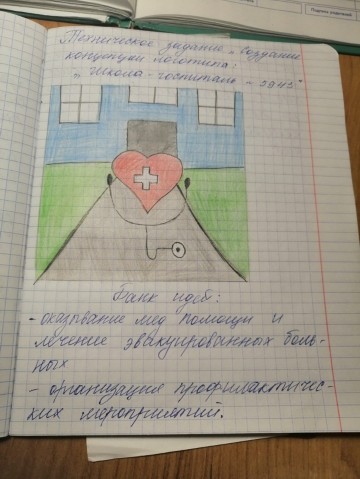 „Техническое задание „ создание
концепции логотипа:
„ Школа - госпиталь - 5945"
Банк идей:
- оказывание мед помощи и
лечение эвакуированных боль-
ных
- организация профилактичес-
ких мероприятий.